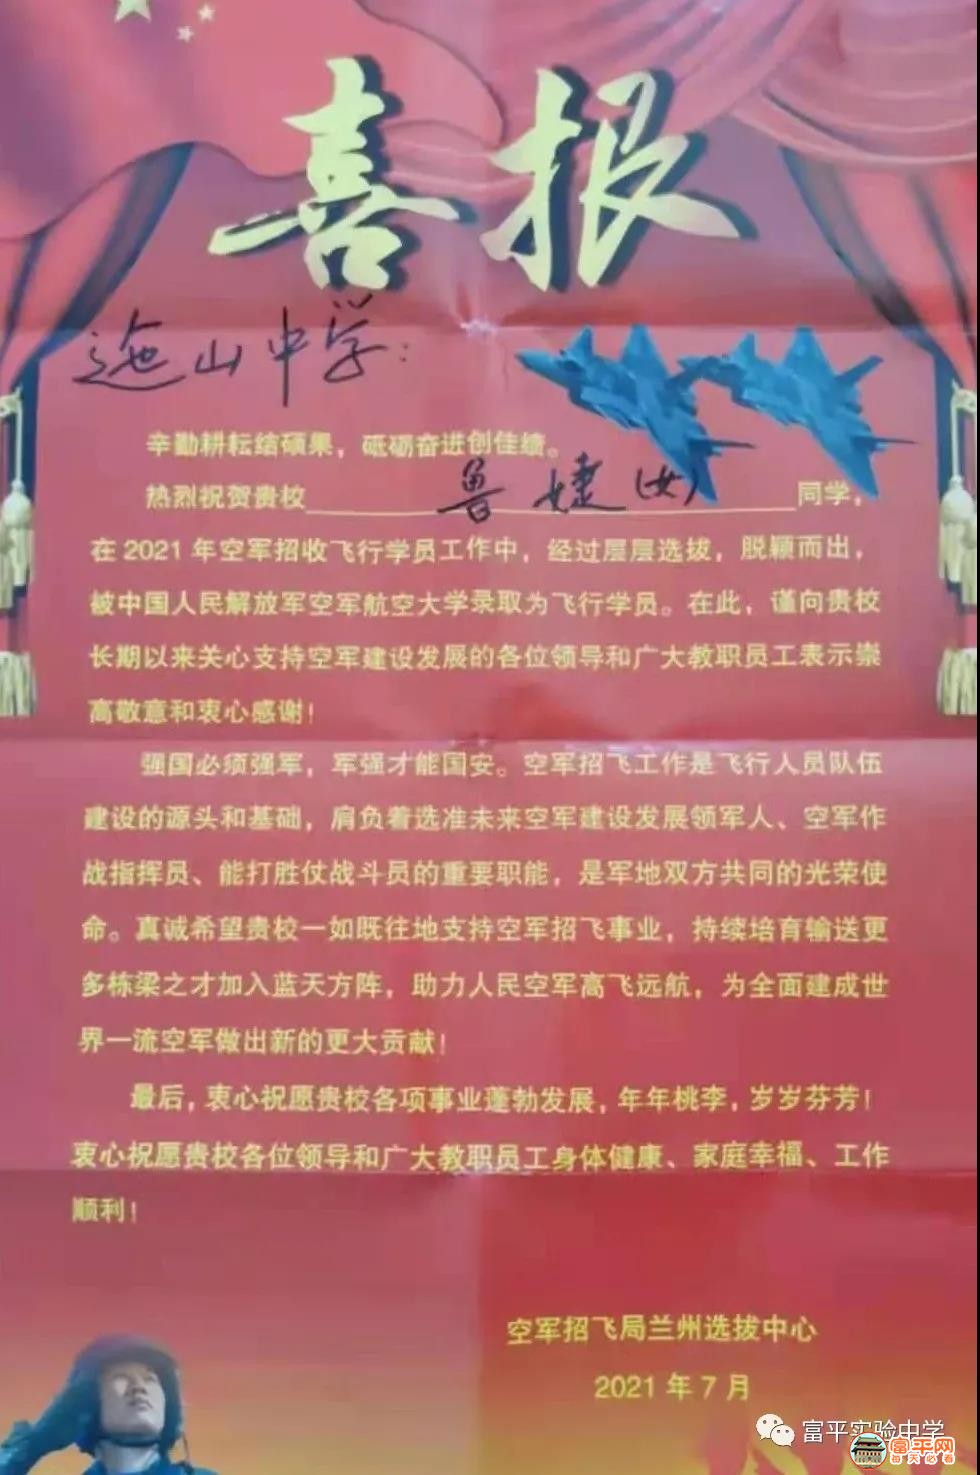 喜报
迤山中学：
辛勤耕耘结硕果，砥砺奋进创佳绩。
热烈祝贺贵校 鲁婕(女) 同学，
在2021年空军招收飞行学员工作中，经过层层选拔，脱颖而出，
被中国人民解放军空军航空大学录取为飞行学员。在此，谨向贵校
长期以来关心支持空军建设发展的各位领导和广大教职员工表示崇
高敬意和衷心感谢！
强国必须强军，军强才能国安。空军招飞工作是飞行人员队伍
建设的源头和基础，肩负着选准未来空军建设发展领军人、空军作
战指挥员、能打胜仗战斗员的重要职能，是军地双方共同的光荣使
命。真诚希望贵校一如既往地支持空军招飞事业，持续培育输送更
多栋梁之才加入蓝天方阵，助力人民空军高飞远航，为全面建成世
界一流空军做出新的更大贡献！
最后，衷心祝愿贵校各项事业蓬勃发展，年年桃李，岁岁芬芳！
衷心祝愿贵校各位领导和广大教职员工身体健康、家庭幸福、工作
顺利！
空军招飞局兰州选拔中心
2021年7月
富平实验中学
富平网
每天必看